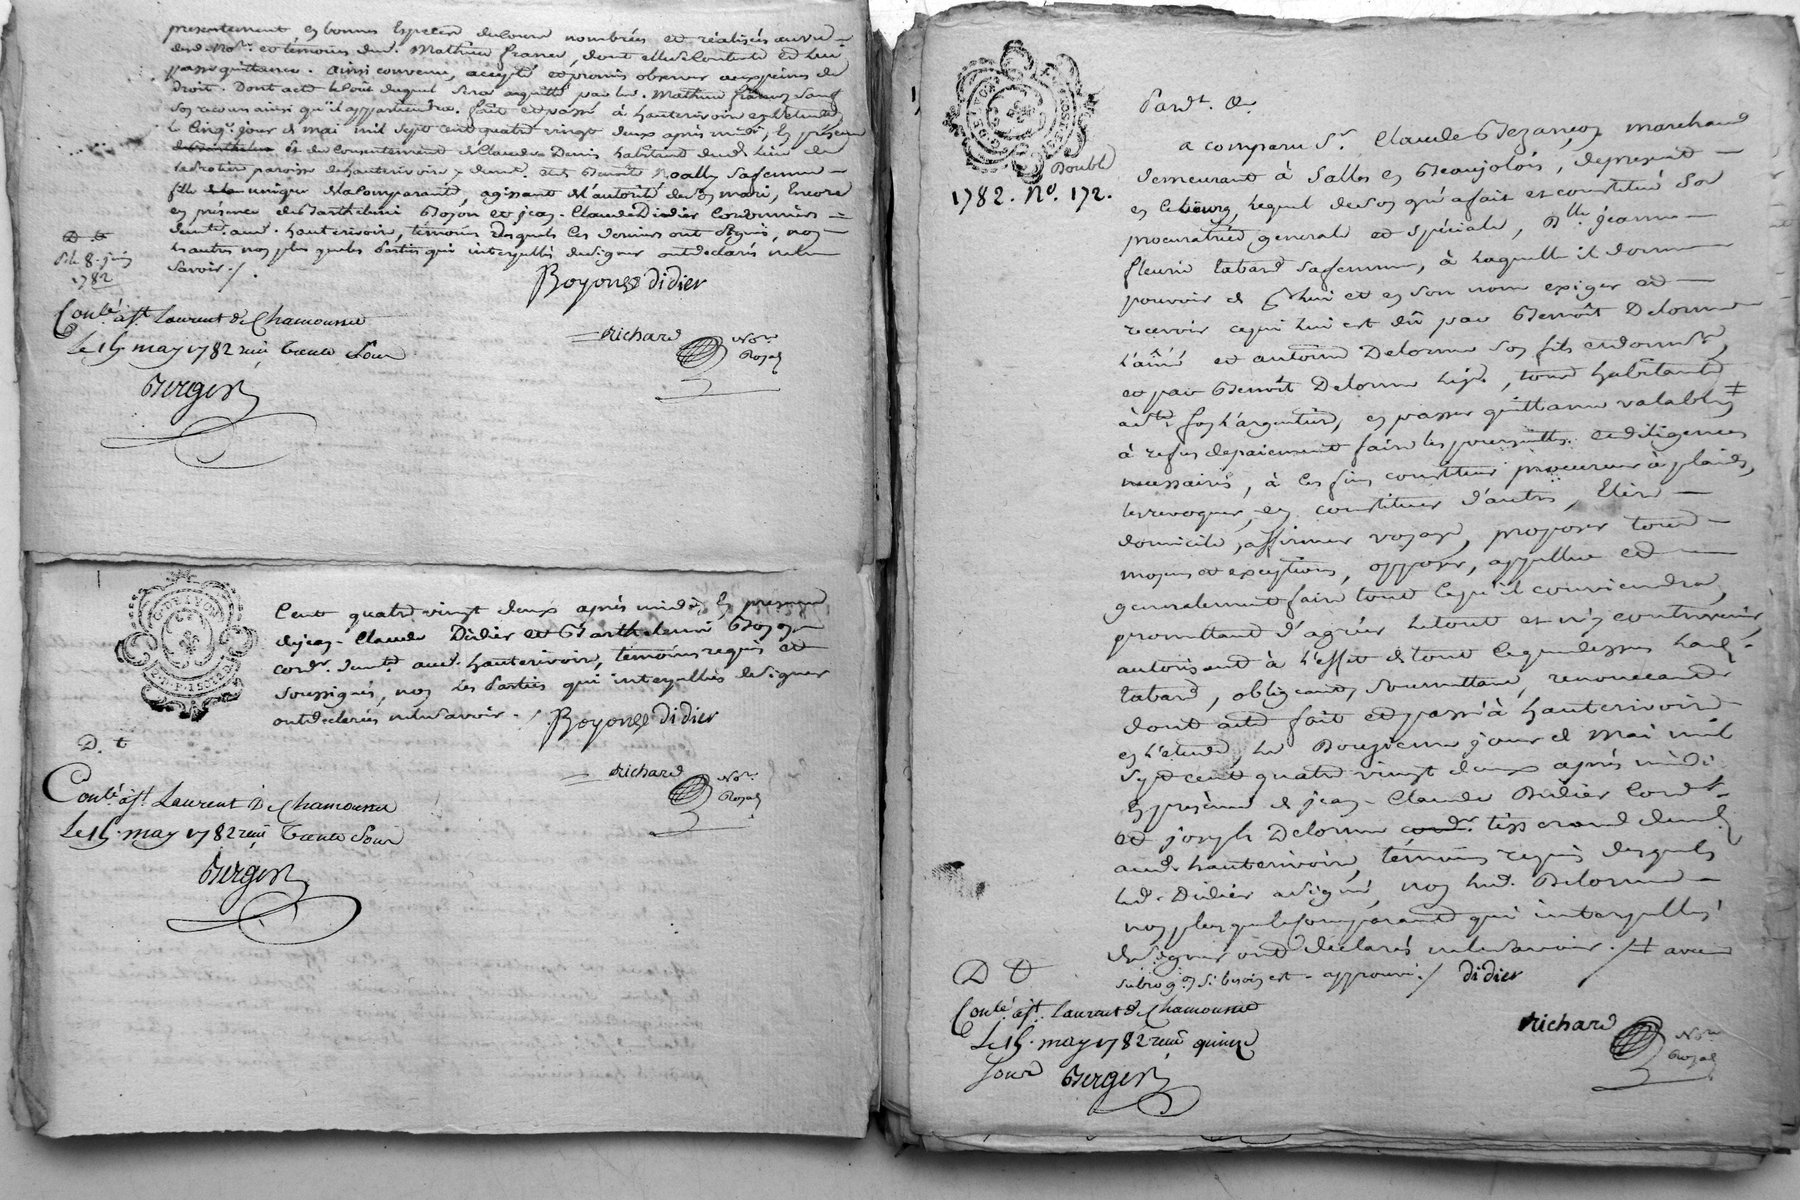 presentement en bonnes Especes de Cours nombrées et réalisés au vu
desd. No.re et témoins dud. Mathieu france, dont elle se Contente et lui
passe quittance. ainsi convenu, accepté et promis observer aux peines de
Droit. Dont acte le Cout duquel sera acquitté par led. Mathieu france sauf
son recours ainsi qu'il appartiendra. fait et passé à hauterivoire en l'etude
le Cinq.e jour de mai mil sept cent quatre vingt deux après midi, En présence
et du Consentement de Claude Denis habitant dud. lieu de
paroisse de hauterivoire y demt. et de Benoite sa femme
fille unique de la Comparante, agissant de l'autorité de son mari, Encore
en présence de Barthelemi Boyon et jean-Claude Didier Cordonniers
demts. aud. hauterivoire, témoins desquels Ces derniers ont signé, non
les autres non plus que les Parties qui interpellés de signer ont declarés ne le
savoir ./.
D. t
P. le 8. juin
1782
Boyon Didier
Conlé. à St. Laurent de Chamousset
Le 15 may 1782 reçu trente sous
Berger
Richard No.re Royal
Cent quatre vingt deux après midi, En presence
de jean-Claude Didier et Barthelemi Boyon
cordrs. demts. aud. hauterivoire, témoins requis et
soussignés, non les Parties qui interpellés de signer
ont declarés ne le savoir ./.
Boyon Didier
D. t
Conlé. à St. Laurent de Chamousset
Le 15. may 1782 reçu trente sous
Berger
Richard No.re Royal
G. DE LYON
Double
1782. No. 172.
Pardt. &
a comparu Sr. Claude Bezançon marchand
demeurant à Salles en Beaujolois, de present
en Ce bourg, Lequel de son gré a fait et constitué Sa
procuratrice generale et spéciale, Dlle. jeanne
fleurie tabard sa femme, à Laquelle il donne
pouvoir de Pr. lui et en son nom exiger et
recevoir ce qui lui est dû par Benoît Delorme
L'aîné et antoine Delorme son fils cordonnr.,
et par Benoît Delorme, tous habitants
à Ste. foy L'argentiere, en passer quittance valable ǂ
à refus de paiement faire les poursuites et diligences
necessaires, à Ces fins constituer procureur à plaids,
les revoquer, en constituer d'autres, Elire
domicile, affirmer voyage, proposer tous
moyens et exceptions, opposer, appeller et
generalement faire tout Ce qu'il conviendra,
promettant d'agréer Le tout et n'y contrevenir,
autorisant à L'effet de tout Ce que dessus Lad.
tabard, obligeant, soumettant, renonceant
dont acte fait et passé à hauterivoire
en L'etude, Le Douzieme jour de Mai mil
sept cent quatre vingt deux après midi
En présence de jean-Claude Didier Cordr.
et joseph Delorme cordr. tisserand demts.
aud. hauterivoire, témoins requis desquels
Led. Didier a signé, non Led. Delorme
non plus que le Comparant qui interpellés
de signer ont declarés ne le savoir ./. ǂ avec
subrogon. si besoin est. approuvé ./. Didier
D t
Conlé. à St. Laurent de Chamousset
Le 15. may 1782 reçu quinze
sous Berger
Richard No.re Royal